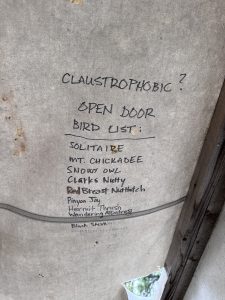 CLAUSTROPHOBIC ?
OPEN DOOR
BIRD LIST:
SOLITAIRE
MT. CHICKADEE
SNOWY OWL
Clarks Nutty
Red Breast Nuthatch
Pinyon Jay
Hermit Thrush
Wandering Albatross
Black